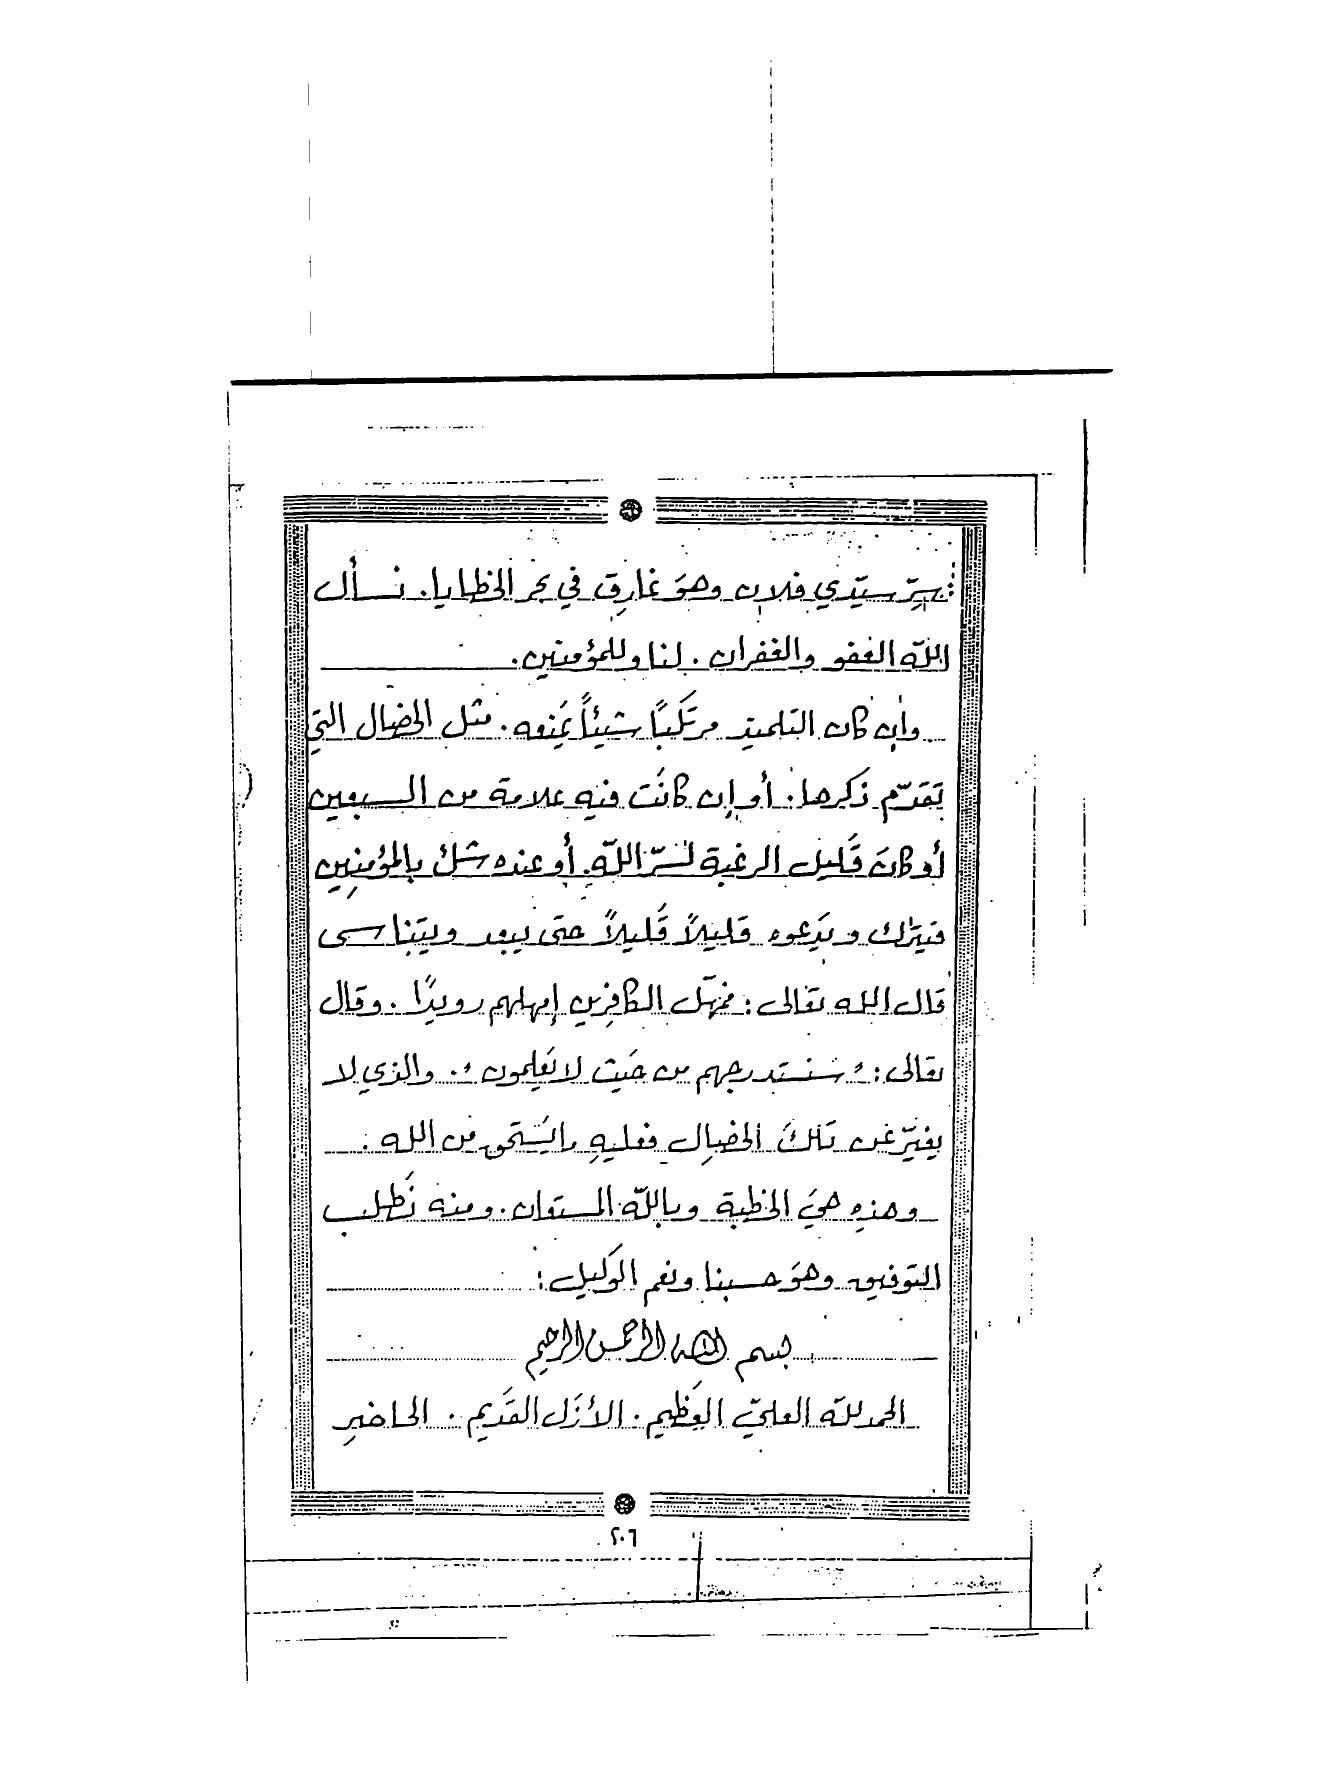 بسِرّ سيّدي فلان وهوَ غارِق في بحر الخطايا. نسأل
اللّه العفو والغفران. لنا وللمؤمنين.
وإن كان التلميذ مرتكباً شيئاً يَمنعه. مثل الخصال التي
تقدّم ذكرها. أو إن كانَت فيه علامة من السبعين
أو كانَ قَليل الرغبة لسرّ اللّه. أو عنده شك بالمؤمنِين
فيترك ويَدعوه قليلاً قَليلاً حتى يبعد ويتناسى
قال الله تعالى: فمهّل الكافِرين إمهلهم رويدًا. وقال
تعالى: "سنستدرجهم من حَيث لا يَعلمون". والذي لا
يغيّر عن تلكَ الخصال فعليهِ ما يَستحق من الله.
وهذهِ هيَ الخطبة وباللّه المستعان. ومنه نَطلب
التوفيق وهوَ حسبنا ونعم الوَكيل:
بسم الله الرحمن الرحيم
الحمد للّه العليّ العَظيم. الأزَل القَديم. الحاضِر
٢٠٦